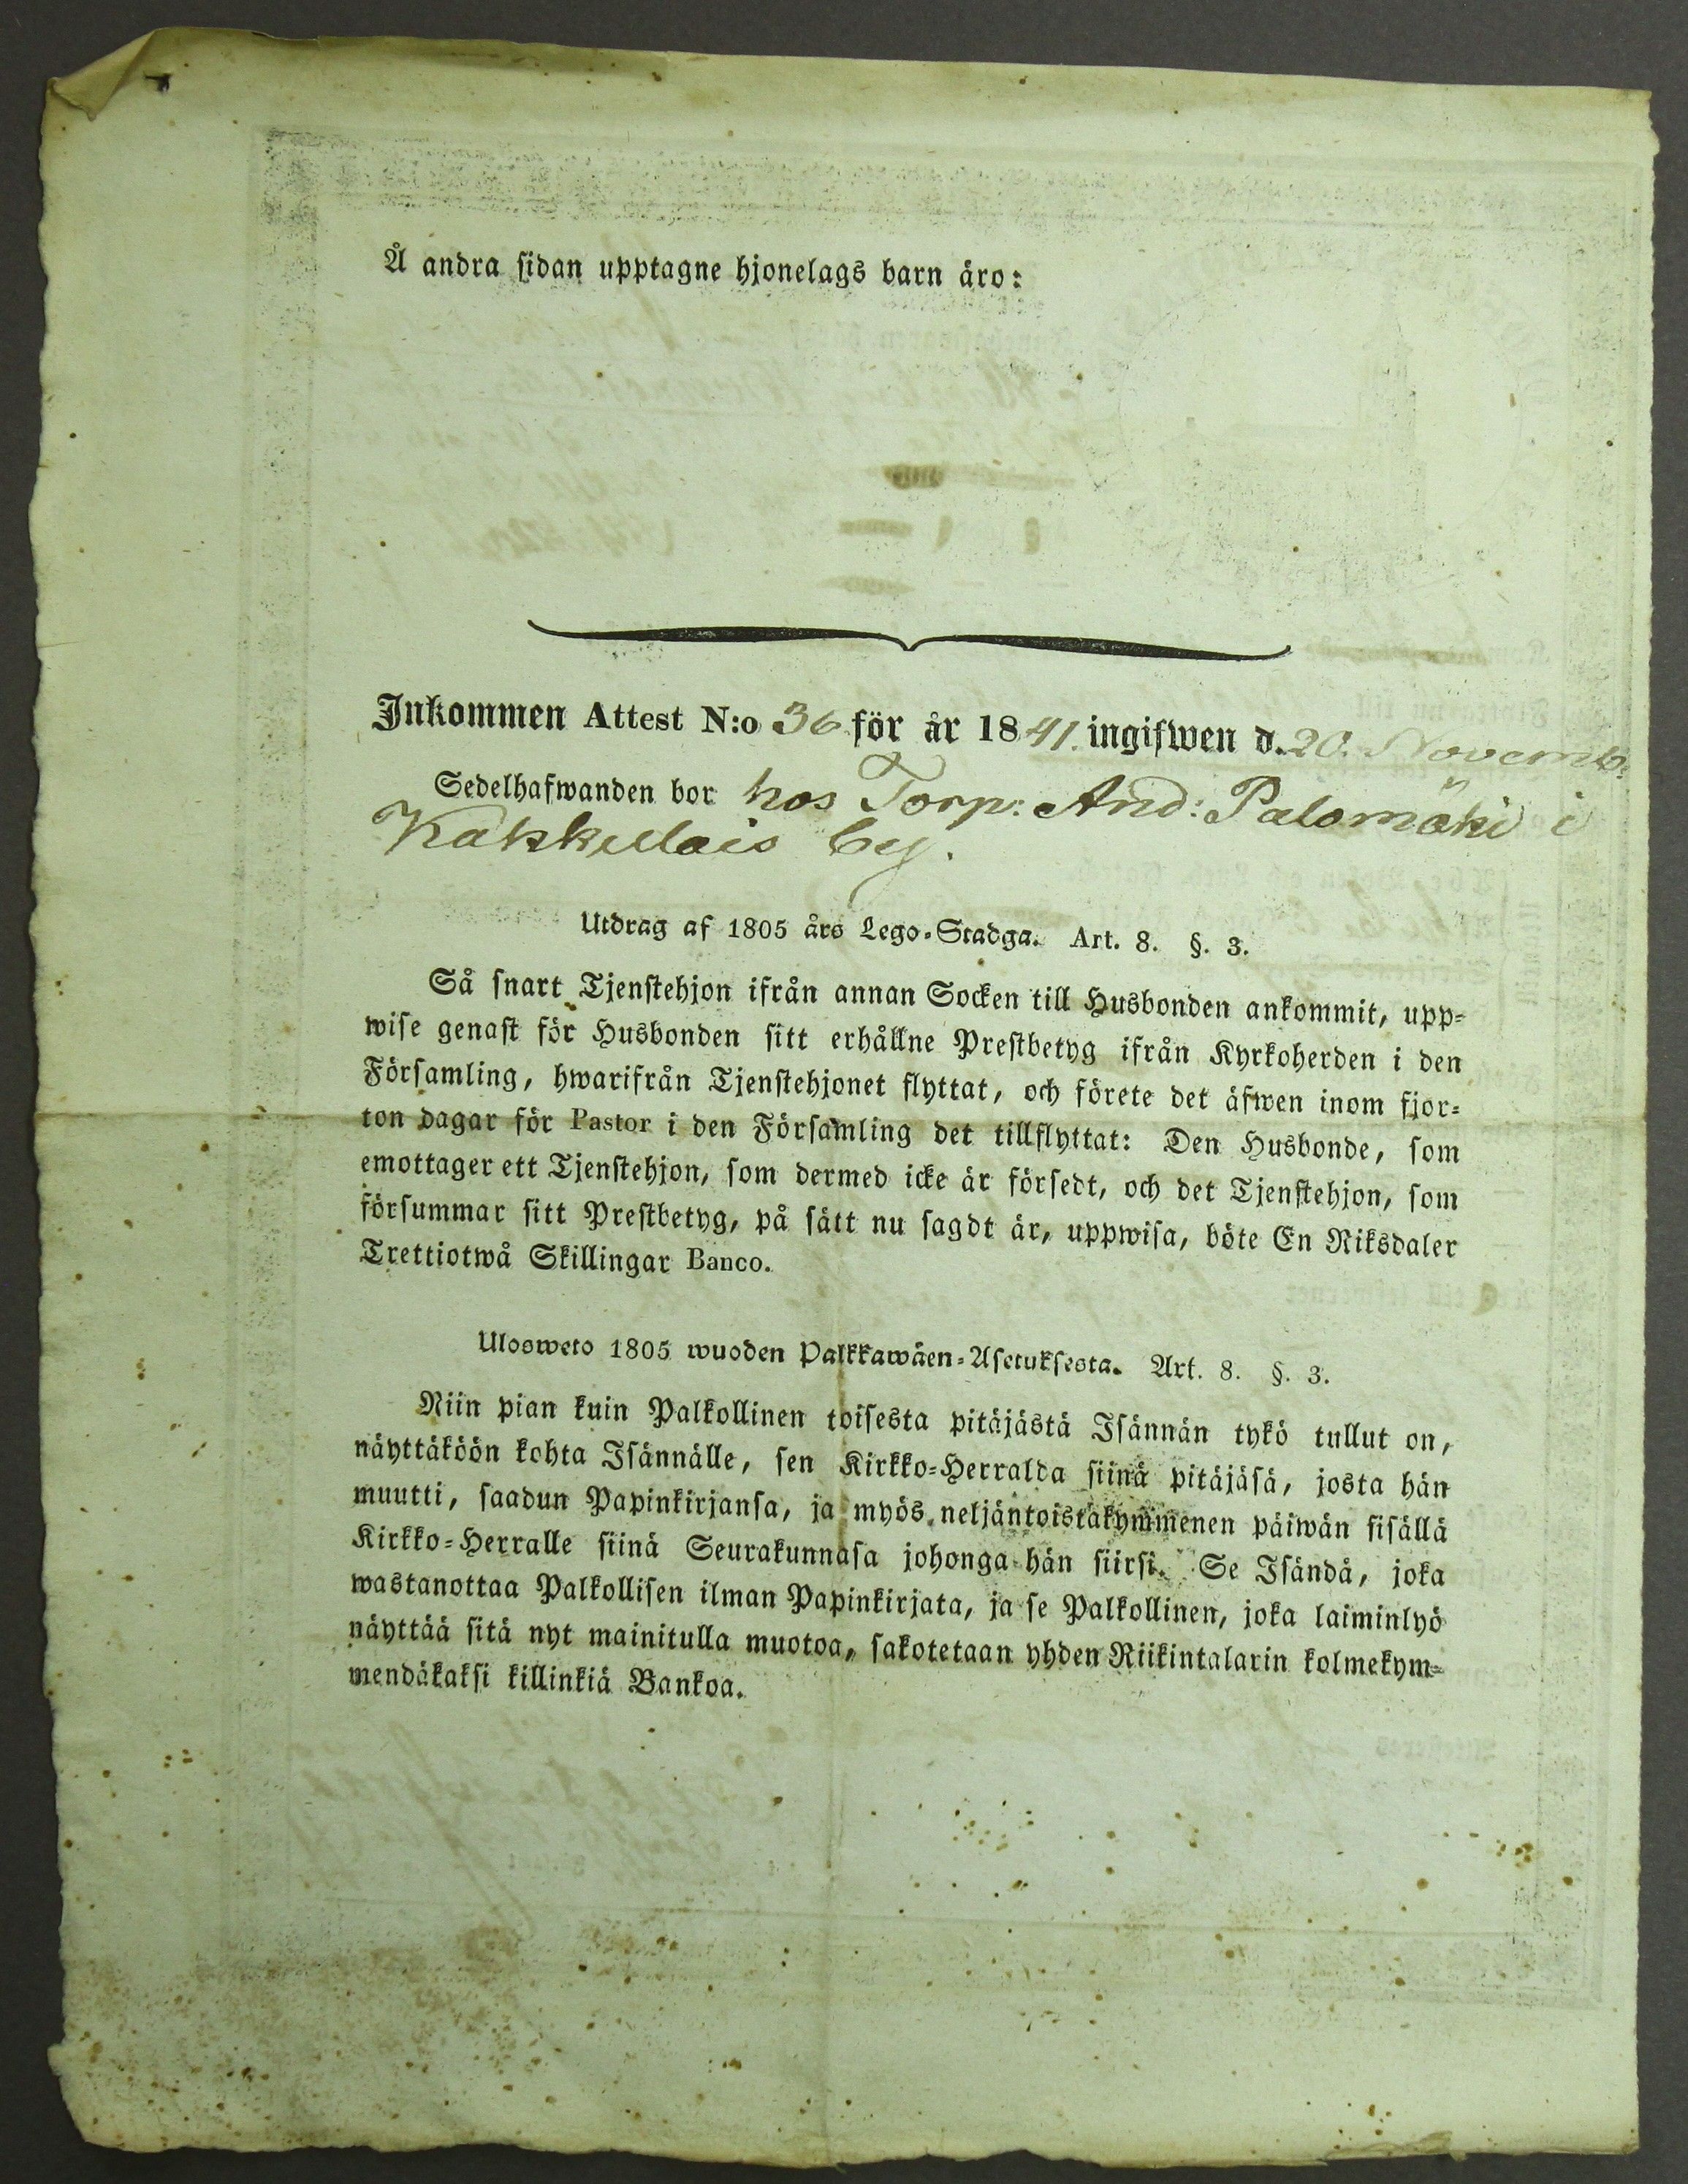 Å andra sidan upptagne hjonelags barn äro:
Inkommen Attest N:o 36 för år 1841. ingifwen d. 20. Novemb:
Sedelhafwanden bor hos Torp: And: Palomäki i
Kakkulais by.
Utdrag af 1805 års Lego-Stadga. Art. 8. §. 3.
Så snart Tjenstehjon ifrån annan Socken till Husbonden ankommit, upp-
wise genast för Husbonden sitt erhållne Prestbetyg ifrån Kyrkoherden i den
Församling, hwarifrån Tjenstehjonet flyttat, och förete det äfwen inom fjor-
ton dagar för Pastor i den Församling det tillflyttat: Den Husbonde, som
emottager ett Tjenstehjon, som dermed icke är försedt, och det Tjenstehjon, som
försummar sitt Prestbetyg, på sätt nu sagdt är, uppwisa, böte En Riksdaler
Trettiotwå Skillingar Banco.
Ulosweto 1805 wuoden Palkkawäen-Asetuksesta. Art. 8. §. 3.
Niin pian kuin Palkollinen toisesta pitäjästä Isännän tykö tullut on,
näyttäköön kohta Isännälle, sen Kirkko-Herralda siinä pitäjäsä, josta hän
muutti, saadun Papinkirjansa, ja myös neljäntoistakymmenen päiwän sisällä
Kirkko-Herralle siinä Seurakunnasa johonga hän siirsi. Se Isändä, joka
wastanottaa Palkollisen ilman Papinkirjata, ja se Palkollinen, joka laiminlyö
näyttää sitä nyt mainitulla muotoa, sakotetaan yhden Riikintalarin kolmekym-
mendäkaksi killinkiä Bankoa.